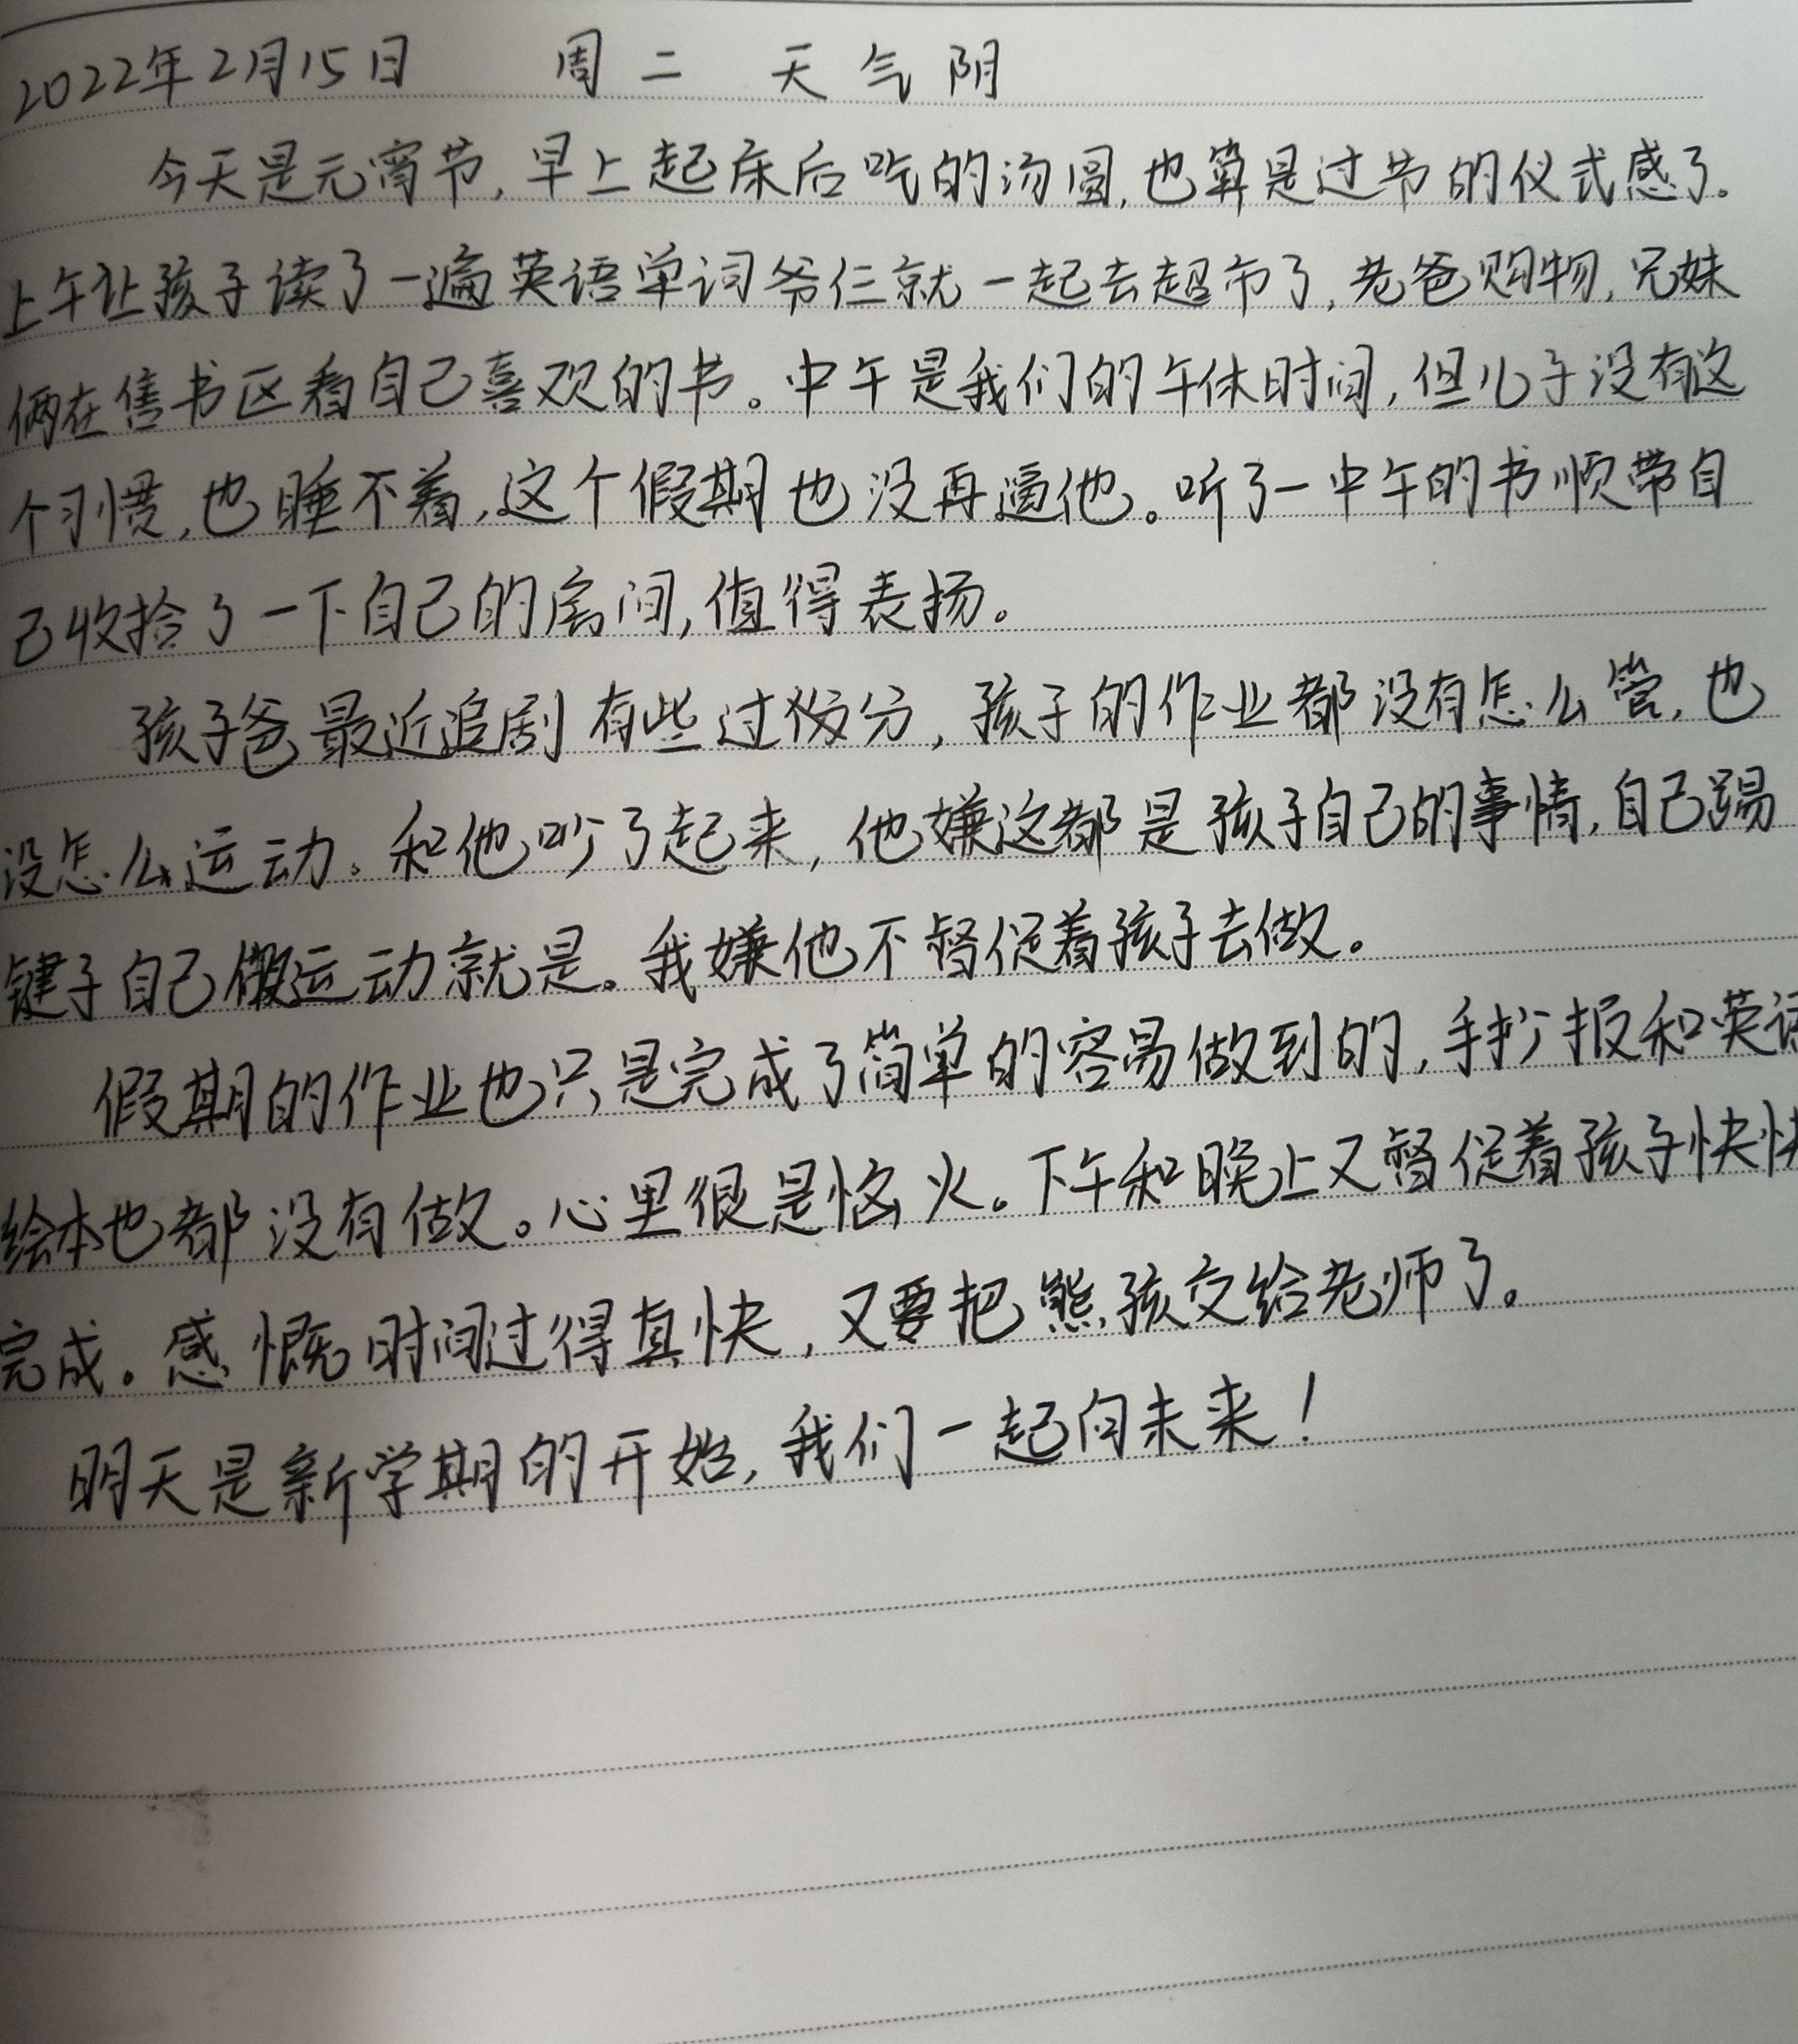 2022年2月15日 周二 天气阴
今天是元宵节,早上起床后吃的汤圆,也算是过节的仪式感了。
上午让孩子读了一遍英语单词爷仨就一起去超市了,老爸购物,兄妹
俩在售书区看自己喜欢的书。中午是我们的午休时间,但儿子没有这
个习惯,也睡不着,这个假期也没再逼他。听了一中午的书顺带自
己收拾了一下自己的房间,值得表扬。
孩子爸最近追剧有些过分,孩子的作业都没有怎么管,也
没怎么运动。和他吵了起来,他嫌这都是孩子自己的事情,自己踢
毽子自己做运动就是。我嫌他不督促着孩子去做。
假期的作业也只是完成了简单的容易做到的,手抄报和英语
绘本也都没有做。心里很是恼火。下午和晚上又督促着孩子快快
完成。感慨时间过得真快,又要把熊孩交给老师了。
明天是新学期的开始,我们一起向未来!